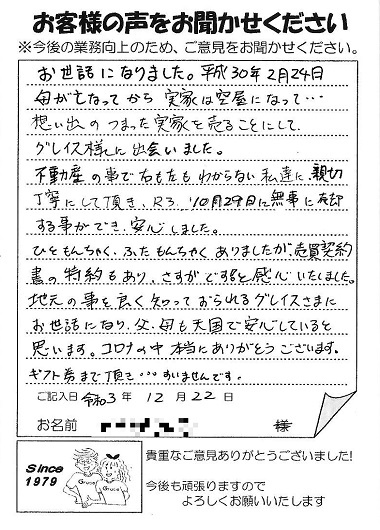 お客様の声をお聞かせください
※今後の業務向上のため、ご意見をお聞かせください。
お世話になりました。平成30年2月24日
母が亡なってから実家は空屋になって…
想い出のつまった実家を売ることにして
グレイス様に出会いました。
不動産の事で右も左もわからない私達に、親切
丁寧にして頂き、R3.10月29日に無事に売却
する事ができ、安心しました。
ひともんちゃく、ふたもんちゃくありましたが、売買契約
書の特約もあり、さすがですと感心いたしました。
地元の事を良く知っておられるグレイスさまに
お世話になり、父、母も天国で安心していると
思います。コロナの中本当にありがとうございます。
ギフト券まで頂き…すいませんです。
ご記入日 令和3年 12月 22日
お名前 様
Since
1979
Grace
Grace
貴重なご意見ありがとうございました!
今後も頑張りますので
よろしくお願いいたします